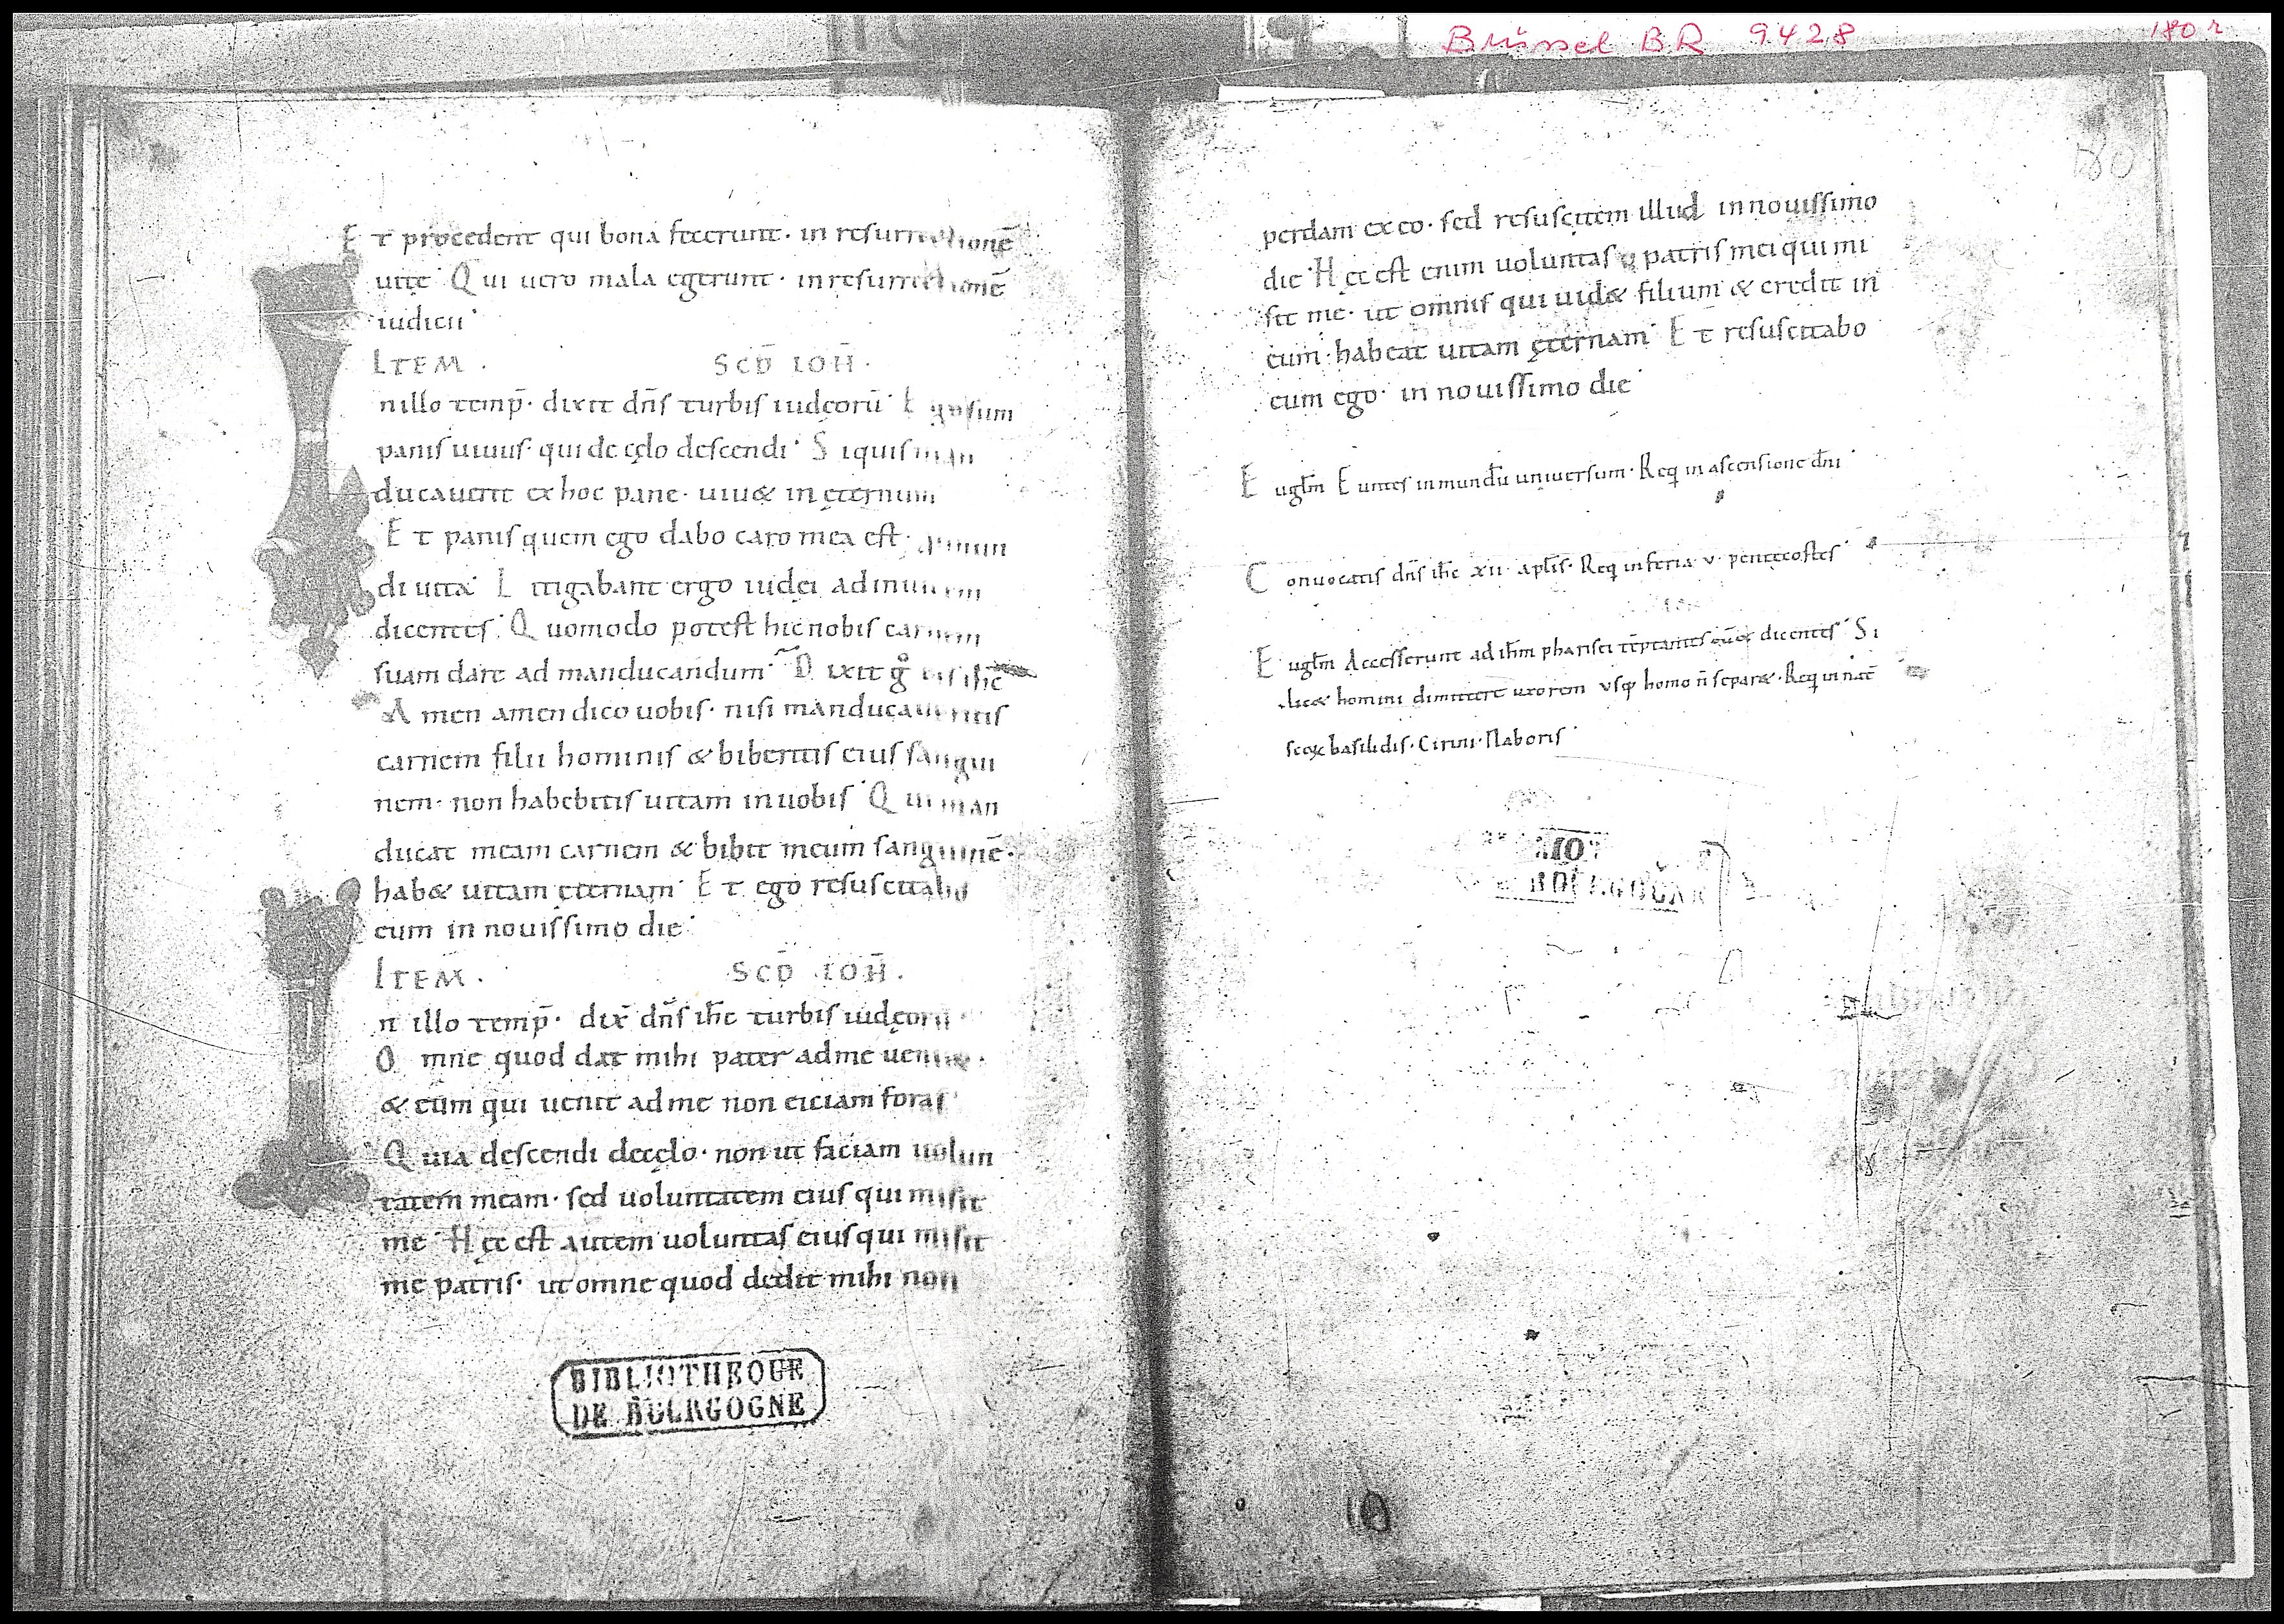 Brüssel BR 9428 180 r
180
Et procedent qui bona fecerunt· in resurrectionē
uitę· Qui uero mala egerunt· in resurrectionē
iudicii·
ITEM. SCD̄ IOH̄.
In illo temp̄· dixit dn̄s turbis iudeorū· Ego sum
panis uiuus· qui de cęlo descendi· Si quis man
ducauerit ex hoc pane· uiu& in ęternum
Et panis quem ego dabo caro mea est· p mun
di uita· Litigabant ergo iudei ad inuicem
dicentes· Quomodo potest hic nobis carnem
suam dare ad manducandum· Dixit g̊ eis ih̄c
Amen amen dico uobis· nisi manducaueritis
carnem filii hominis & biberitis eius sangui
nem· non habebitis uitam in uobis· Qui man
ducat meam carnem & bibit meum sanguinē·
hab& uitam ęternam· Et ego resuscitabo
eum in nouissimo die·
ITEM. SCD̄ IOH̄.
In illo temp̄· dix̄ dn̄s ih̄c turbis iudęorū·
Omne quod dat mihi pater ad me ueni&·
& eum qui uenit ad me non eiciam foras·
Quia descendi de cęlo· non ut faciam uolun
tatem meam· sed uoluntatem eius qui misit
me· Hęc est autem uoluntas eius qui misit
me patris· ut omne quod dedit mihi non
BIBLIOTHEQUE
DE BOURGOGNE
perdam ex eo· sed resuscitem illud in nouissimo
die· Hęc est enim uoluntas patris mei qui mi
sit me· ut omnis qui uid& filium & credit in
eum· habeat uitam ęternam· Et resuscitabo
eum ego· in nouissimo die·
Eugl̄m Euntes in mundū uniuersum· Req̄ in ascensione dn̄i·
Conuocatis dn̄s ih̄c xii apl̄is· Req̄ in feria v· pentecostes·
Eugl̄m Accesserunt ad ih̄m pharisei tēptantes eū & dicentes· Si
lic& homini dimittere uxorem usq; homo n̄ separ&· Req̄ in nat̄
scōꝝ basilidis· Cirini· Naboris·